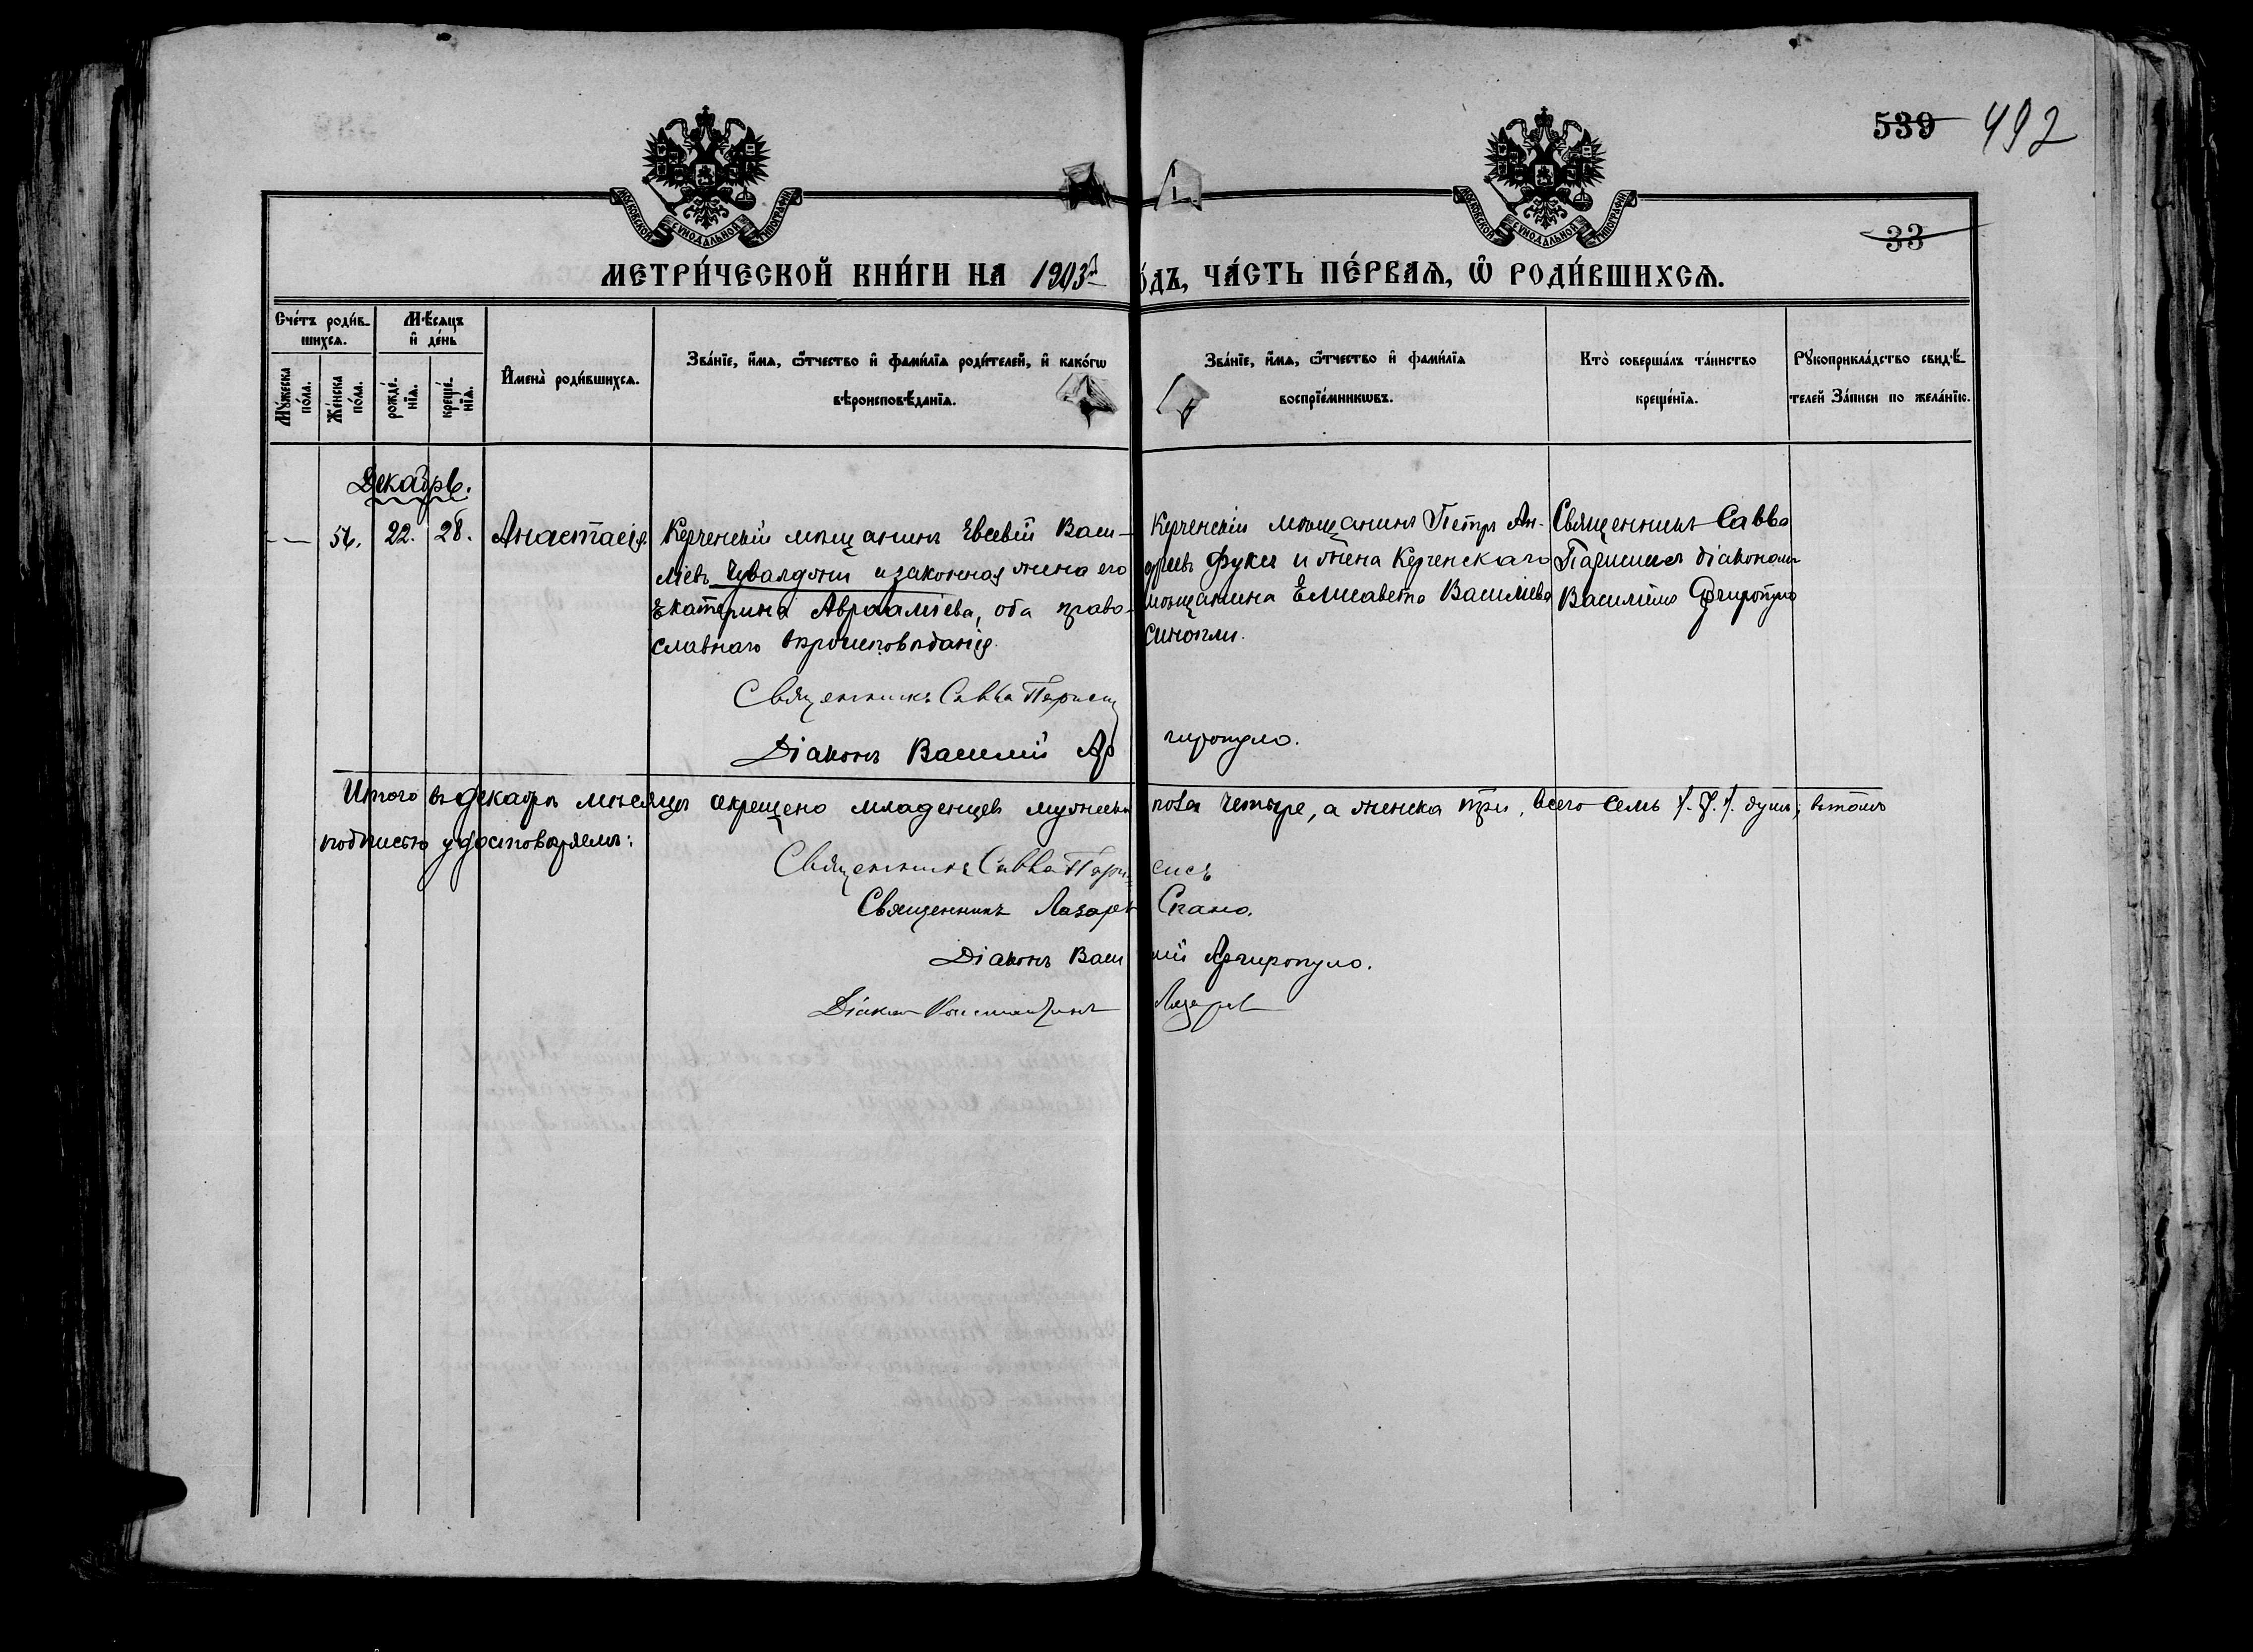 539 492
МОСКОВСКОЙ СѴНОДАЛЬНОЙ ТИПОГРАФІИ
МОСКОВСКОЙ СѴНОДАЛЬНОЙ ТИПОГРАФІИ
33
МЕТРИ́ЧЕСКОЙ КНИ́ГИ НА 1903й
о́дъ, ЧА́СТЬ ПЕ́РВАѦ, Ѿ РОДИ́ВШИХСѦ.
Сче́тъ роди́в-
шихсѧ.
Мꙋ́жеска по́ла.
Же́нска по́ла.
Мѣ́сѧцъ
и҆ де́нь
рожде́-
нїѧ.
креще́-
нїѧ.
И҆мена̀ роди́вшихсѧ.
Зва́нїе, и҆́мѧ, ѻ҆́тчество и҆ фами́лїѧ роди́телей, и҆ како́гѡ
вѣроисповѣ́данїѧ.
Зва́нїе, и҆́мѧ, ѻ҆́тчество и҆ фами́лїѧ
воспрїе́мникѡвъ.
Кто̀ соверша́лъ та́инство
креще́нїѧ.
Рꙋкоприкла́дство свидѣ́-
телей За́писи по жела́нїю.
Декабрь.
— 54. 22. 28. Анастасія.
Керченскій мѣщанинъ Евсевій Васи-
ліевъ Чувалджи и законная жена его
Екатерина Авраамiева, оба право-
славнаго вѣроисповѣданія.
Керченскій мѣщанинъ Петръ Ан-
дреевъ Фуки и жена Керченскаго
мѣщанина Елисавета Василіева
Синопли.
Священникъ Савва
Парисисъ діакономъ
Василіемъ Аргиропуло
Священникъ Савва Парисисъ
Діаконъ Василій Аргиропуло.
Итого въ декабрѣ мѣсяцѣ окрещено младенцевъ мужеска пола четыре, а женска три, всего семь /.7./. душъ; въ томъ
подписью удостовѣряемъ:
Священникъ Савва Парисисъ
Священникъ Лазарь Спано.
Діаконъ Василій Аргиропуло.
Діаконъ Константинъ Лазарев